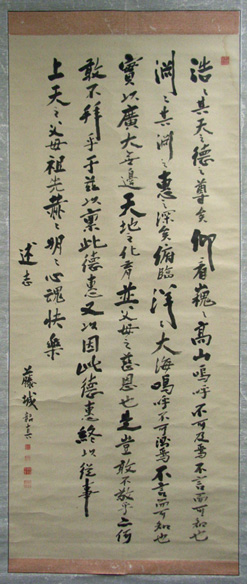 浩々其天之德之尊矣仰看巍々高山嗚呼不可及焉不言而可知也
淵々其淵之惠之深矣俯臨洋々大海嗚呼不可測焉不言而可知也
實以廣大無邊天地之化育並父母之慈恩也生豈敢不敬乎亦何
敢不拜乎于茲以稟此德惠又以因此德惠終以從事
上天之父母祖先赫々明々心魂快樂
述志
藤城